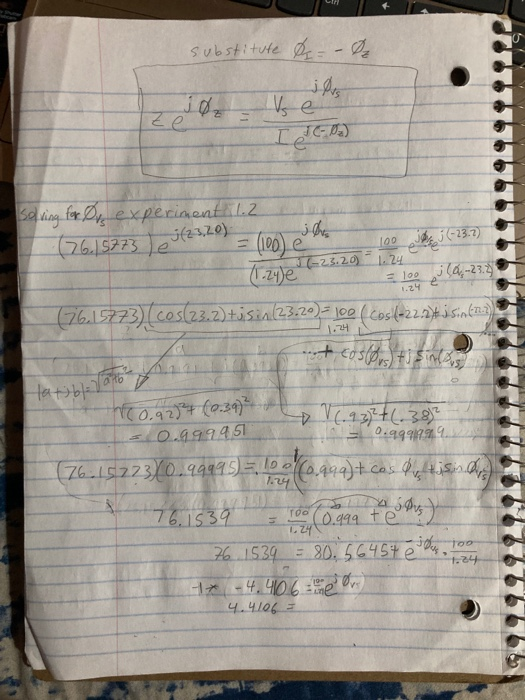 substitute ϕ_I = -ϕ_z
z e^{jϕ_z} = V_s e^{jϕ_{vs}} / I e^{j(-ϕ_z)}
solving for ϕ_{vs} experiment 1.2
(76.15773) e^{j(23.20)} = (100) e^{jϕ_{vs}} / (1.24) e^{j(-23.20)} = 100/1.24 e^{jϕ_{vs}} e^{j(-23.2)}
= 100/1.24 e^{j(ϕ_{vs}-23.2)}
(76.15773)(cos(23.2)+jsin(23.20) = 100/1.24 (cos(-22.2)+jsin(-22.2)
...+ cos(ϕ_{vs})+jsin(ϕ_{vs})
|a+jb| = √(a²+b²)
√(0.92)²+(0.39)²
= 0.999951
√(.93)²+(.38)²
= 0.999999
(76.15773)(0.99995) = 100/1.24 ((0.999) + cos ϕ_{vs} + jsin ϕ_{vs})
76.1539 = 100/1.24 (0.999 + e^{jϕ_{vs}})
76.1539 = 80.5645 + e^{jϕ_{vs}} · 100/1.24
-1* -4.4106 = 100/1.24 e^{jϕ_{vs}}
4.4106 =